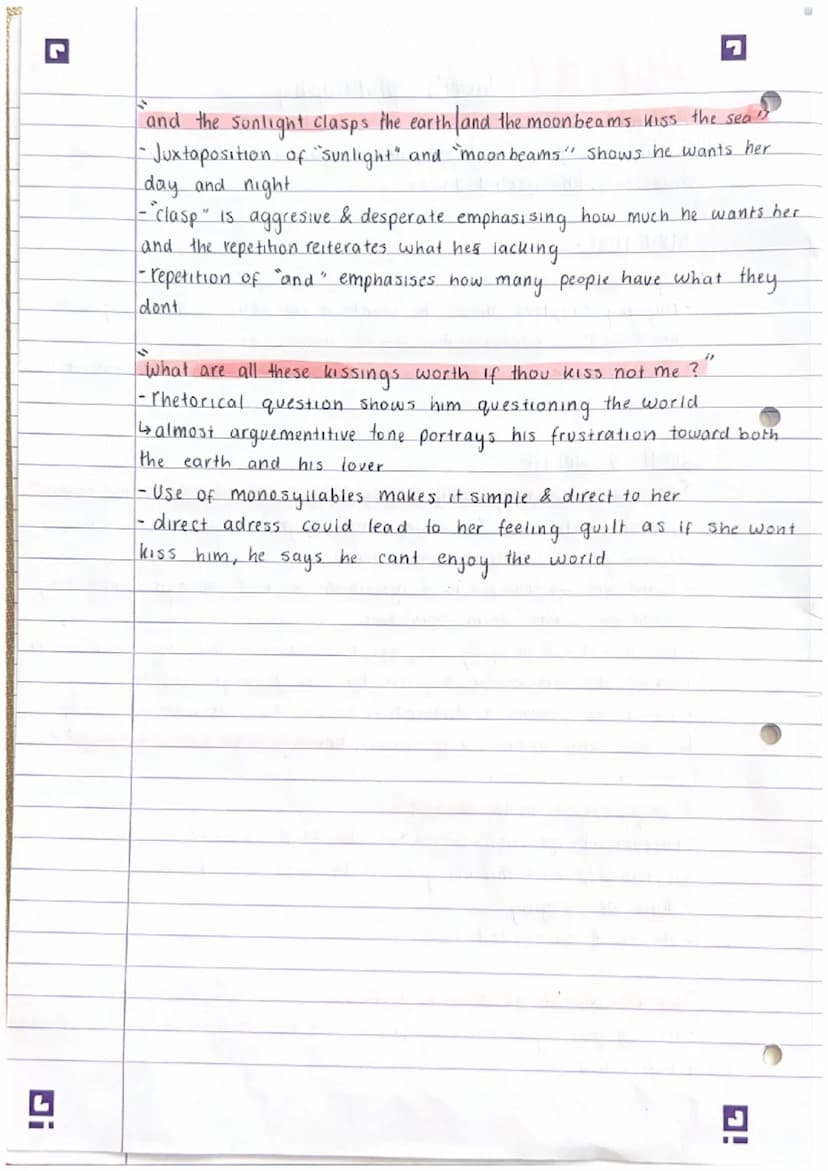 "and the sunlight clasps the earth|and the moonbeams kiss the sea"
- Juxtaposition of "sunlight" and "moonbeams" shows he wants her
day and night
- "clasp" is aggresive & desperate emphasising how much he wants her
and the repetition reiterates what hes lacking
- repetition of "and" emphasises how many people have what they
dont
"What are all these kissings worth if thou kiss not me?"
- rhetorical question shows him questioning the world
↳ almost arguementitive tone portrays his frustration toward both
the earth and his lover
- Use of monosyllables makes it simple & direct to her
- direct adress could lead to her feeling guilt as if she wont
kiss him, he says he cant enjoy the world